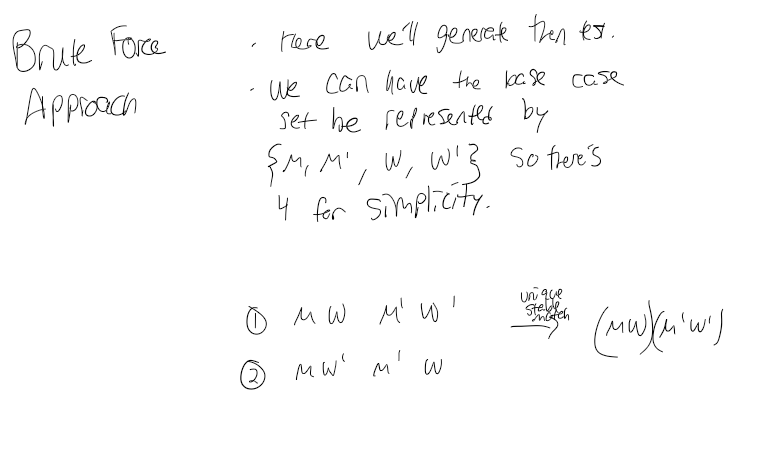 Brute Force
Approach
· Here we'll generate then test.
· we can have the base case
set be represented by
{M, M', W, W'} so there's
4 for simplicity.
① M W M' W'
unique
stable
match
→ (MW)(M'W')
② M W' M' W